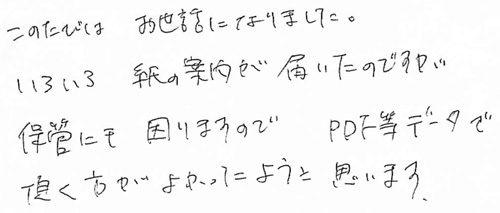 このたびは お世話になりました。
いろいろ 紙の案内が 届いたのですが
保管にも 困りますので PDF等データで
頂く方がよかったように思います.